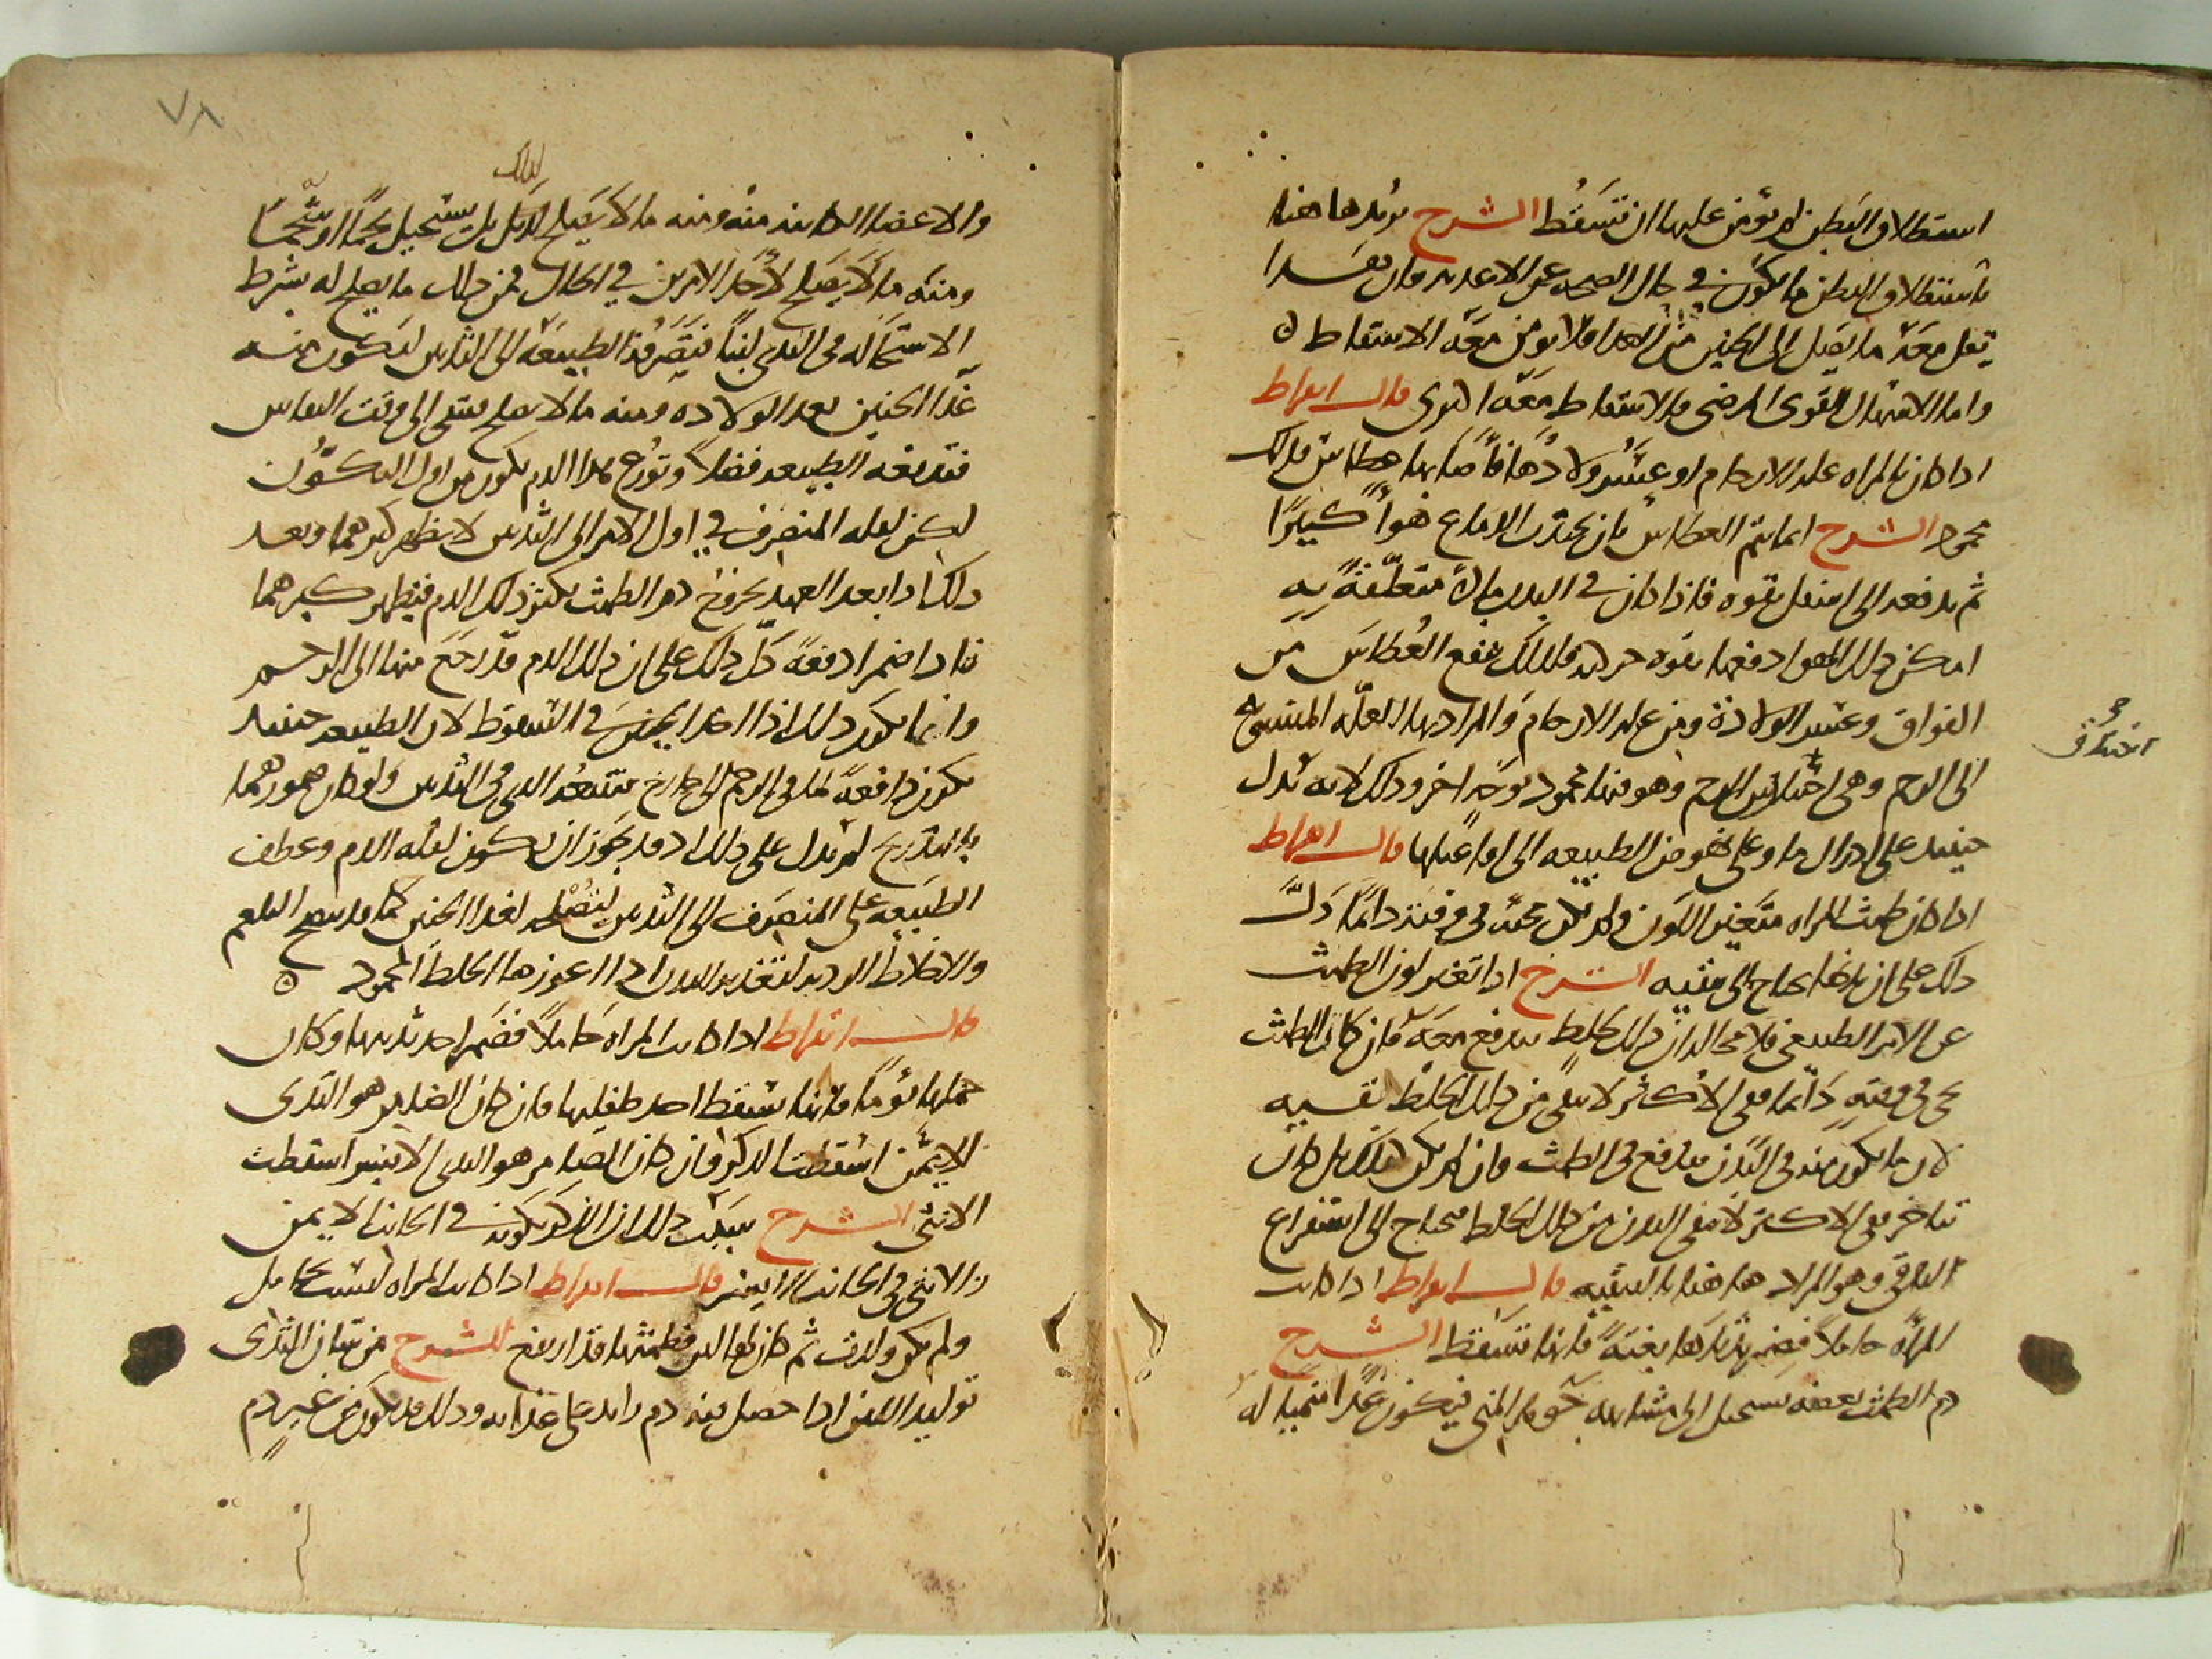 استطلاق البطن لم يؤمن عليها ان تسقط الشرح يريد هاهنا
باستطلاق البطن ما يكون في حال الصحه عن الاغذيه فان بعدا
يقل معه ما يصل الى الجنين من الغدا فلا يومن معه الاسقاط
واما الاسهال القوى المرضى فالاسقاط معه اقوى قال ابقراط
اذا كان بالمراه عله الارحام او عسر ولادها فاصابها عطاس فذلك
محمود الشرح انما يتم العطاس بان يجتذب الدماغ هواً كثيرًا
ثم يدفعه الى اسفل بقوه فاذا كان في البدن ماده متعلقة به
امكن ذلك الهوا دفعها بقوه حركته فلذلك ينفع العطاس من
الفواق وعسر الولادة ومن علل الارحام والمراد بها العله المنسوبه
الى الرحم وهى اختناق الرحم وهو فيها محمود بوجه اخر وذلك لانه يدل
حينيد على ادراك ما وعلى نهوض الطبيعه الى افاعيلها قال ابقراط
اذا كان طمث المراه متغير اللون ولم يكن مجيه في وقته دائما دل
ذلك على ان بدنها يحتاج الى تنقيه الشرح اذا تغير لون الطمث
عن الامر الطبيعى فلا محاله ان ذلك لخلط يندفع معه فان كان الطمث
يجى في وقته دائما ففى الاكثر لا يبقى من ذلك الخلط بقيه
لان ما يكون منه في البدن يندفع في الطمث وان لم يكن كذلك بل كان
يتاخر ففى الاكثر لا ينقى البدن من ذلك الخلط فيحتاج الى استفراغ
الباقى وهو المراد هاهنا بالتنقيه قال ابقراط اذا كانت
المرأه حاملاً فضمر ثدياها بغتة فانها تسقط الشرح
دم الطمث بعضه يستحيل الى مشابهه جوهر المنى فيكون غدا منميا له
اختناق
٧٨
والاعضا الكاينه منه ومنه ما لا يصلح لذلك بل يستحيل لحمًا او شحمًا
ومنه ما لا يصلح لاحد الامرين في الحال فمن ذلك ما يصلح له بشرط
الاستحاله فى الثدى لبنًا فتصرفه الطبيعه الى الثديين ليكون منه
غدا الجنين بعد الولاده ومنه ما لا يصلح فيبقى الى وقت النفاس
فتدفعه الطبيعه فضلاً وتوزع هذا الدم يكون من اول التكون
لكن لقله المنصرف في اول الامر الى الثديين لا يظهر كبرهما وبعد
ذلك اذا بعد العهد بخروج دم الطمث يكثر ذلك الدم فيظهر كبرهما
فاذا ضمرا دفعة دل ذلك على ان ذلك الدم قد رجع منهما الى الرحم
وانما يكون ذلك اذا اخذ الجنين في السقوط لان الطبيعه حينيد
تكون دافعة لما في الرحم الى خارج فيتبعه الذى في الثديين ولو كان ضمورهما
بالتدريج لم يدل على ذلك اذ قد يجوز ان يكون لقله الدم وعطف
الطبيعه على المنصرف الى الثديين لتصلحه لغدا الجنين كما قد ينضج البلغم
والاخلاط الرديه لتغذيه البدن اذا اعوزها الخلط المحمود
قال ابقراط اذا كانت المراه حاملاً فضمر احد ثدييها وكان
حملها توما فانها تسقط احد طفليها فان كان الضامر هو الثدى
الايمن اسقطت الذكر وان كان الضامر هو الثدى الايسر اسقطت
الانثى الشرح سبب ذلك ان الذكر تكونه في الجانب الايمن
والانثى في الجانب الايسر قال ابقراط اذا كانت المراه ليست بحامل
ولم تكن ولدت ثم كان لها لبن فطمثها قد ارتفع الشرح من شان الثدى
توليد اللبن اذا حصل فيه دم زايد على غذائه وذلك قد يكون من غير دم